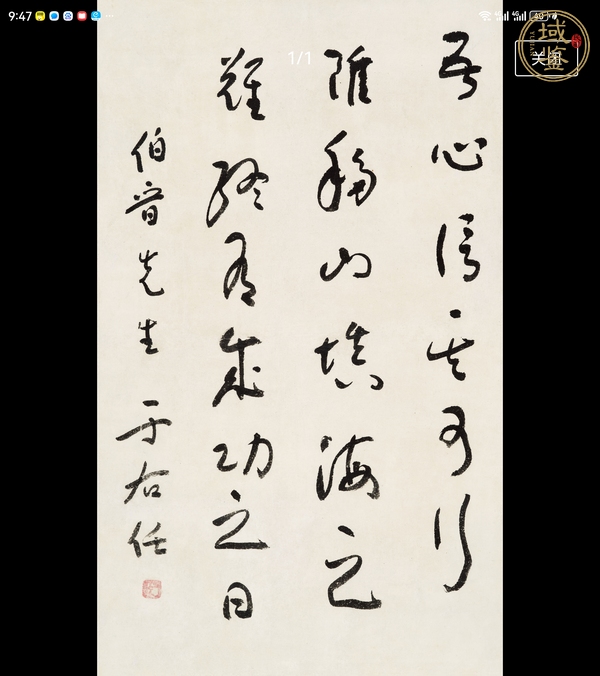 9:47
1/1
关闭
域鉴
吾心信其可行
虽移山填海之
难终有成功之日
伯音先生
于右任